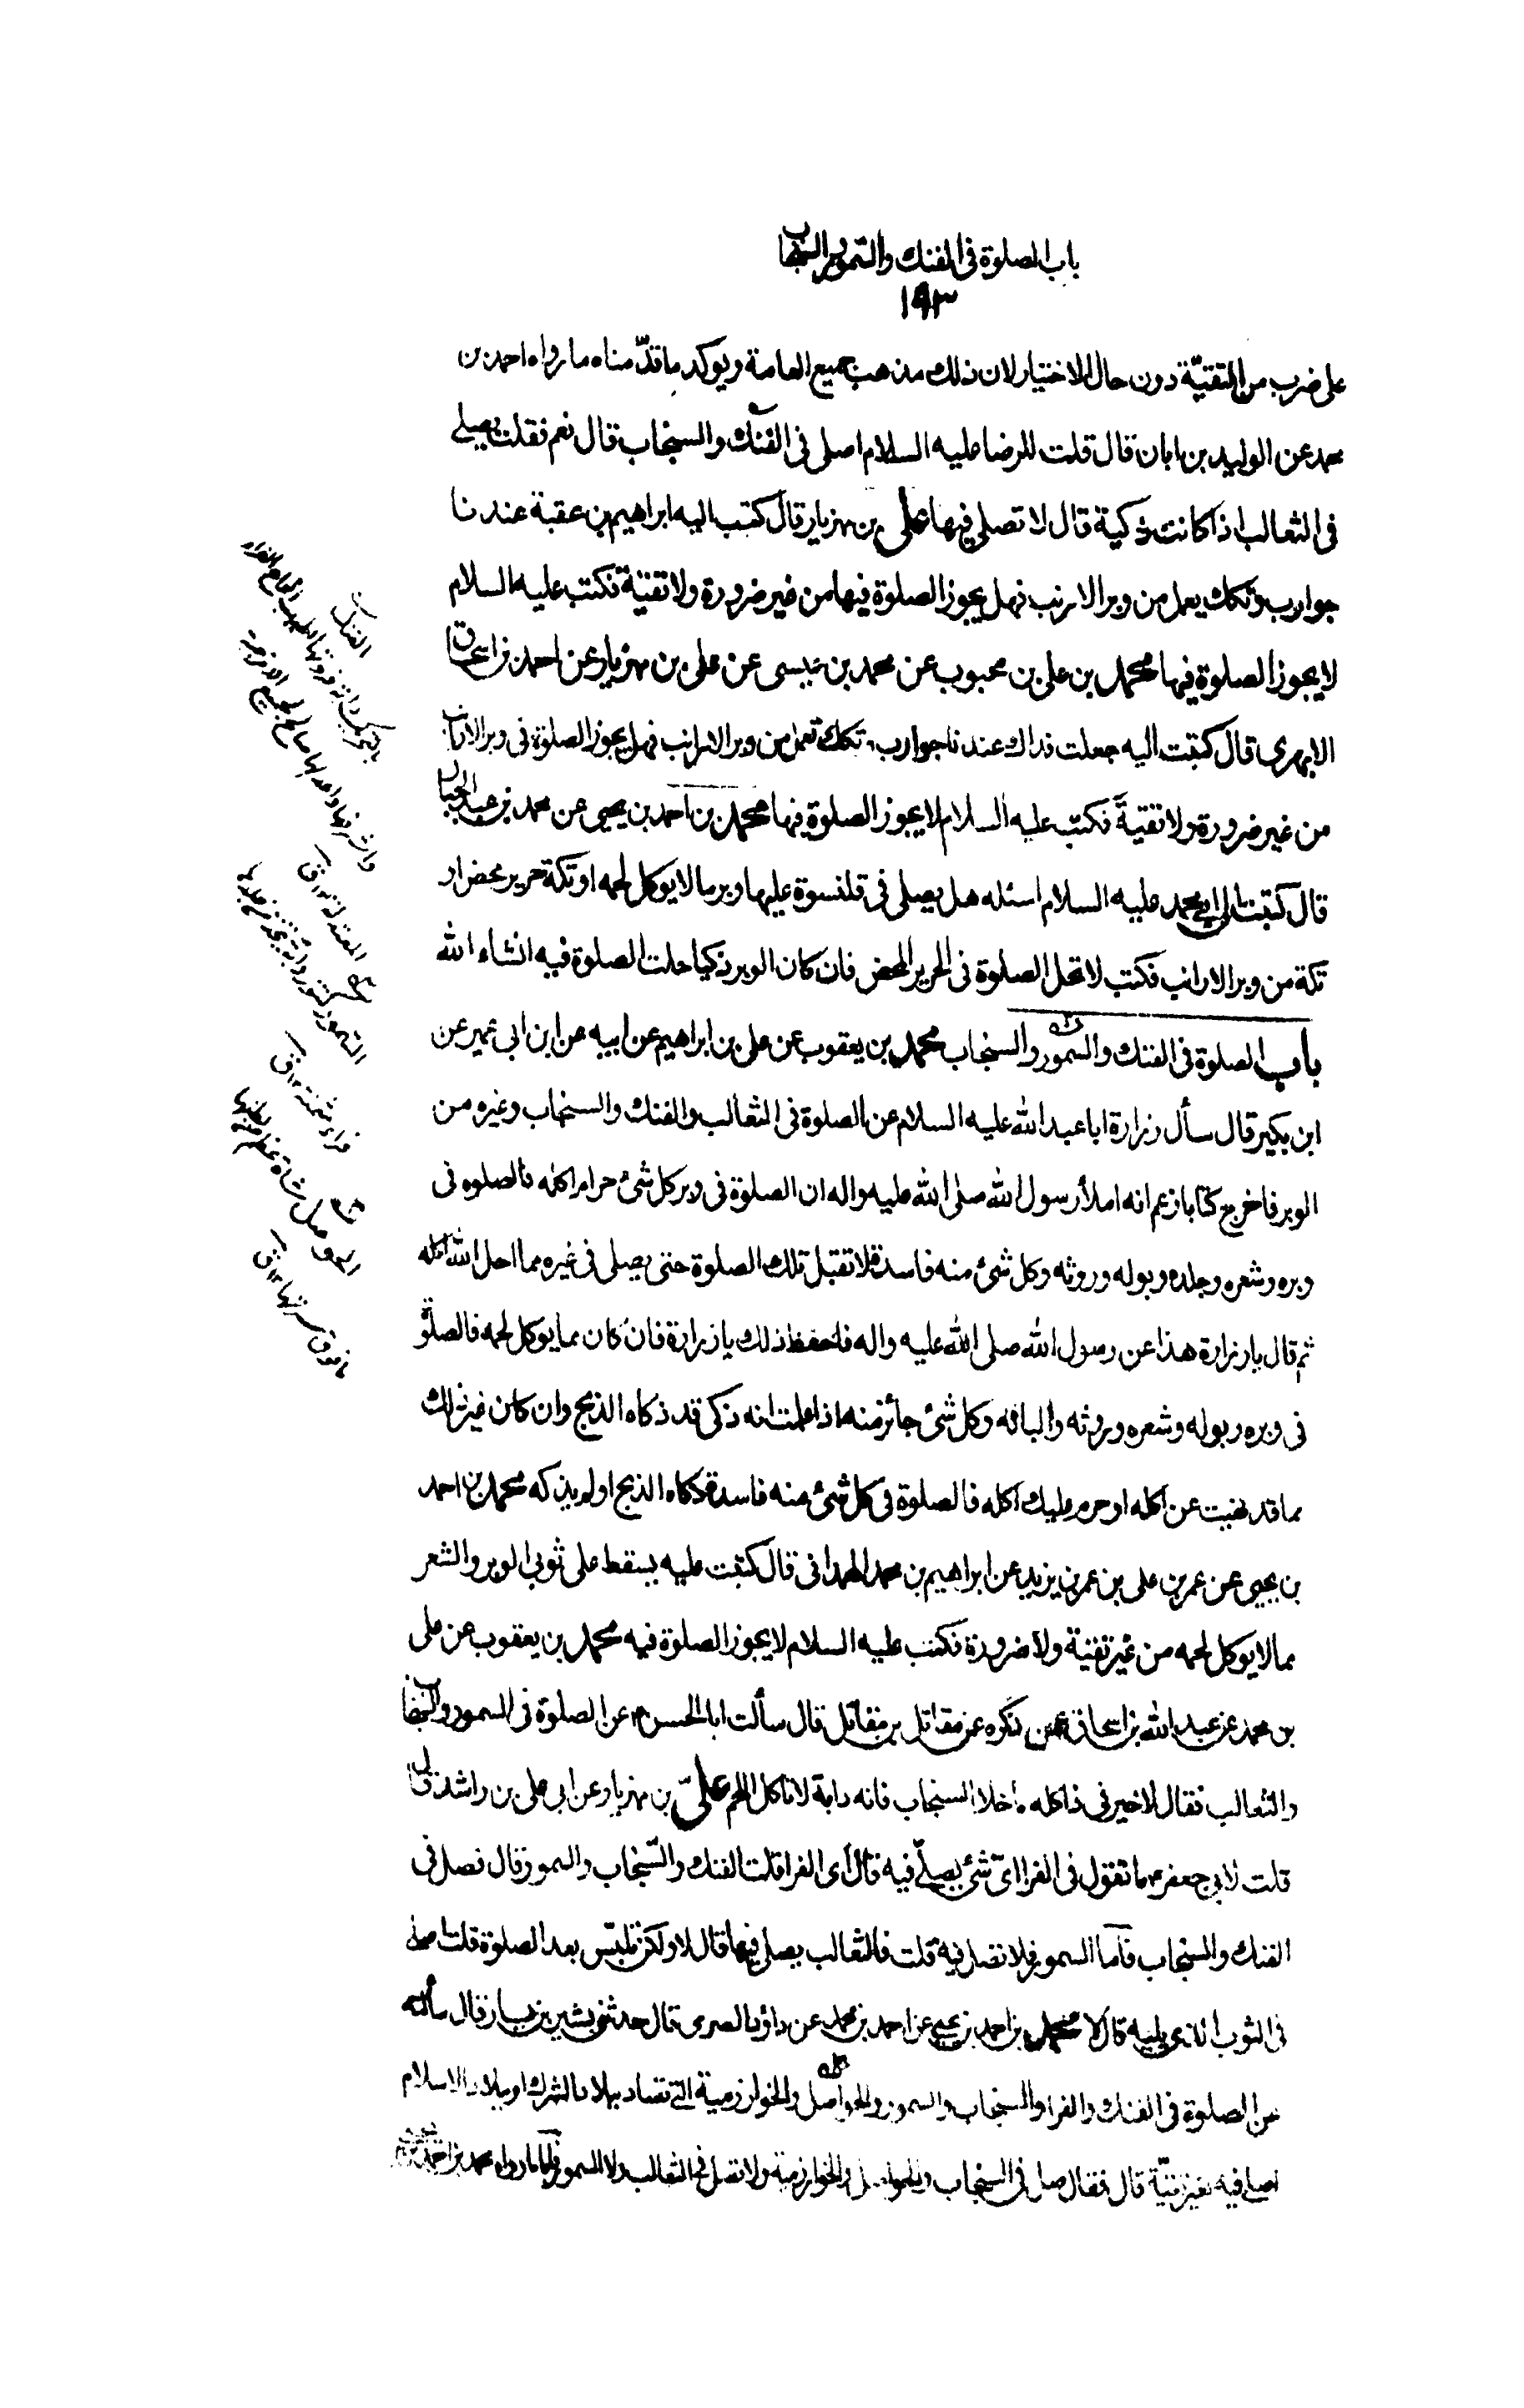 باب الصلوة فى الفنك والسمور والسنجاب
١٩٣
على ضرب من التقيّة دون حال الاختيار لان ذلك مذهب جميع العامة ويوكد ما قدّمناه ما رواه احمد بن
محمد عن الوليد بن ابان قال قلت للرضا عليه السلام اصلى فى الفنك والسنجاب قال نعم فقلت يصلى
فى الثعالب اذا كانت ذكية قال لا تصلى فيها على بن مهزيار قال كتب اليه ابراهيم بن عقبة عندنا
جوارب وتكك يعمل من وبر الارنب فهل يجوز الصلوة فيها من غير ضرورة ولا تقيّة فكتب عليه السلام
لا يجوز الصلوة فيها محمد بن على بن محبوب عن محمد بن عيسى عن على بن مهزيار عن احمد بن اسحاق
الابهرى قال كتبت اليه جعلت فداك عندنا جوارب وتكك تعمل من وبر الارانب فهل يجوز الصلوة فى وبر الارانب
من غير ضرورة ولا تقيةً فكتب عليه السلام لا يجوز الصلوة فيها محمد بن احمد بن يحيى عن محمد بن عبد الجبار
قال كتبت الى ابى محمد عليه السلام اسئله هل يصلى فى قلنسوة عليها وبر ما لا يوكل لحمه او تكة حرير محض او
تكة من وبر الارانب فكتب لا تحل الصلوة فى الحرير المحض فان كان الوبر ذكيا حلت الصلوة فيه انشاء الله
باب الصلوة فى الفنك والسمور والسنجاب محمد بن يعقوب عن على بن ابراهيم عن ابيه عن ابن ابى عمير عن
ابن بكير قال سأل زرارة ابا عبد الله عليه السلام عن الصلوة فى الثعالب والفنك والسنجاب وغيره من
الوبر فاخرج كتابا زعم انه املأ رسول الله صلى الله عليه واله ان الصلوة فى وبر كل شئ حرام اكله فالصلوه فى
وبره وشعره وجلده وبوله وروثه وكل شئ منه فاسدة لا تقبل تلك الصلوة حتى يصلى فى غيره مما احل الله اكله
ثم قال يا زرارة هذا عن رسول الله صلى الله عليه واله فاحفظ ذلك يا زرارة فان كان مما يوكل لحمه فالصلوة
فى وبره وبوله وشعره وروثه والبانه وكل شئ جائز منه اذا علمت انه ذكى قد ذكاه الذبح وان كان غير ذلك
مما قد نهيت عن اكله او حرم عليك اكله فالصلوة فى كل شئ منه فاسدة ذكاه الذبح اولم يذكه محمد بن احمد
بن يحيى عن عمر بن على بن عمر بن يزيد عن ابراهيم بن محمد الهمدانى قال كتبت عليه يسقط على ثوبى الوبر والشعر
مما لا يوكل لحمه من غير تقيّة ولا ضرورة فكتب عليه السلام لا يجوز الصلوة فيه محمد بن يعقوب عن على
بن محمد عن عبد الله بن اسحاق عمن ذكره عن مقاتل بن مقاتل قال سألت ابا الحسن ع عن الصلوة فى السمور والسنجاب
والثعالب فقال لا خير فى ذا كله ما خلا السنجاب فانه دابة لا تاكل اللحم علىّ بن مهزيار عن ابى على بن راشد قال
قلت لابى جعفر ع ما تقول فى الفرا اىّ شئ يصلّى فيه قال اى الفرا قلت الفنك والسّنجاب والسمور قال فصل فى
الفنك والسنجاب فاما السمور فلا تصل فيه قلت فالثعالب يصلى فيها قال لا ولكن تلبس بعد الصلوة قلت اصلى
فى الثوب الذى يليه قال لا محمد بن احمد بن يحيى عن احمد بن محمد عن داؤد الصرمى قال حدثنى بشير بن يسار قال سألته
عن الصلوة فى الفنك والفرا والسنجاب والسمور والحواصل والخوارزمية التى تصاد ببلاد الشرك او ببلاد الاسلام
اصلى فيه بغير تقيّة قال فقال صل فى السنجاب والحواصل والخوارزمية ولا تصل فى الثعالب ولا السمور فاما ما رواه محمد بن احمد
الفنك